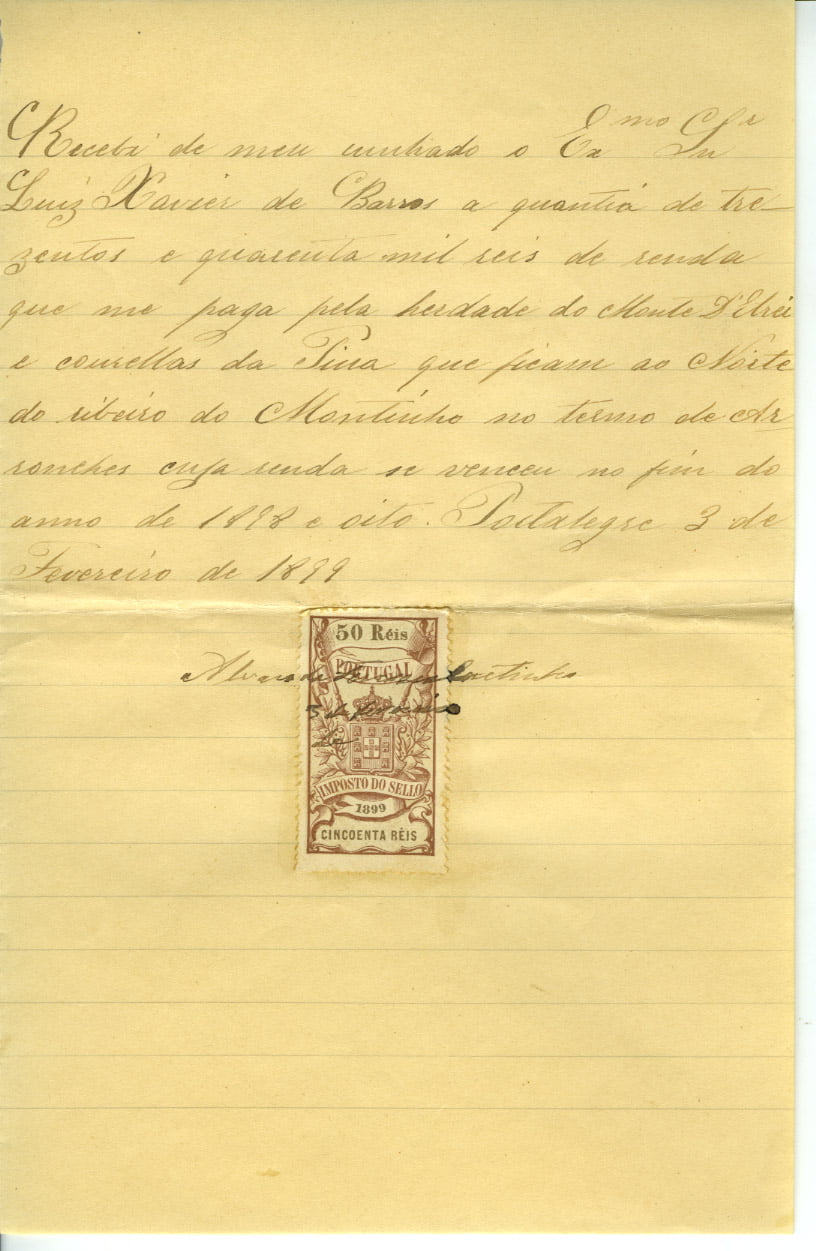 Recebi de meu cunhado o Exmo Snr
Luiz Xavier de Barros a quantia de tre-
zentos e quarenta mil reis de renda
que me paga pela herdade do Monte D'Elrei
e courellas da Pina que ficam ao Norte
do ribeiro do Montinho no termo de Ar
ronches cuja renda se venceu no fim do
anno de 1898 e oito. Portalegre 3 de
Fevereiro de 1899
50 Réis
PORTUGAL
Coutinho
3 de fevereiro
de
IMPOSTO DO SELLO
1899
CINCOENTA RÉIS